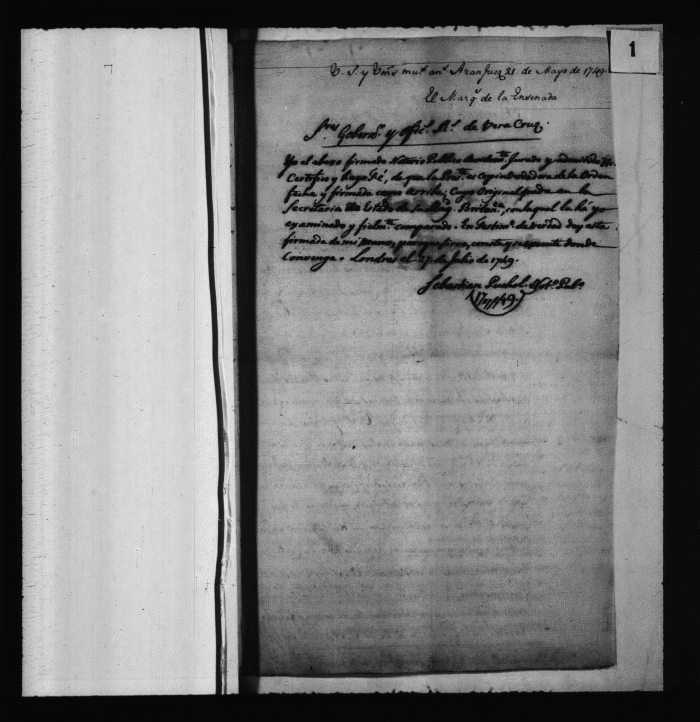 1
V. S. y Vms. mus. ans. Aranjuez 21. de Mayo de 1749.
El Marqs. de la Ensenada
Sres. Goberr. y Ofics. Rs. de Vera Cruz.
Yo el abaxo firmado Notario Publico jurado y admitido
Certifico y hago Fé, de que la Prete. es Copia de la Orden
fecha y firmada como arriba; Cuyo Original queda en la
Secretaria de Estado de su Mag. Brita., con la qual la hé yo
examinado y fielmte. comparado. En testimo. de verdad doy esta
firmada de mi Mano, para que sirva, conste y represente donde
Convenga. Londres el 27 de Julio de 1749.
Sebastian Puchol Noto. Pubo.
1749